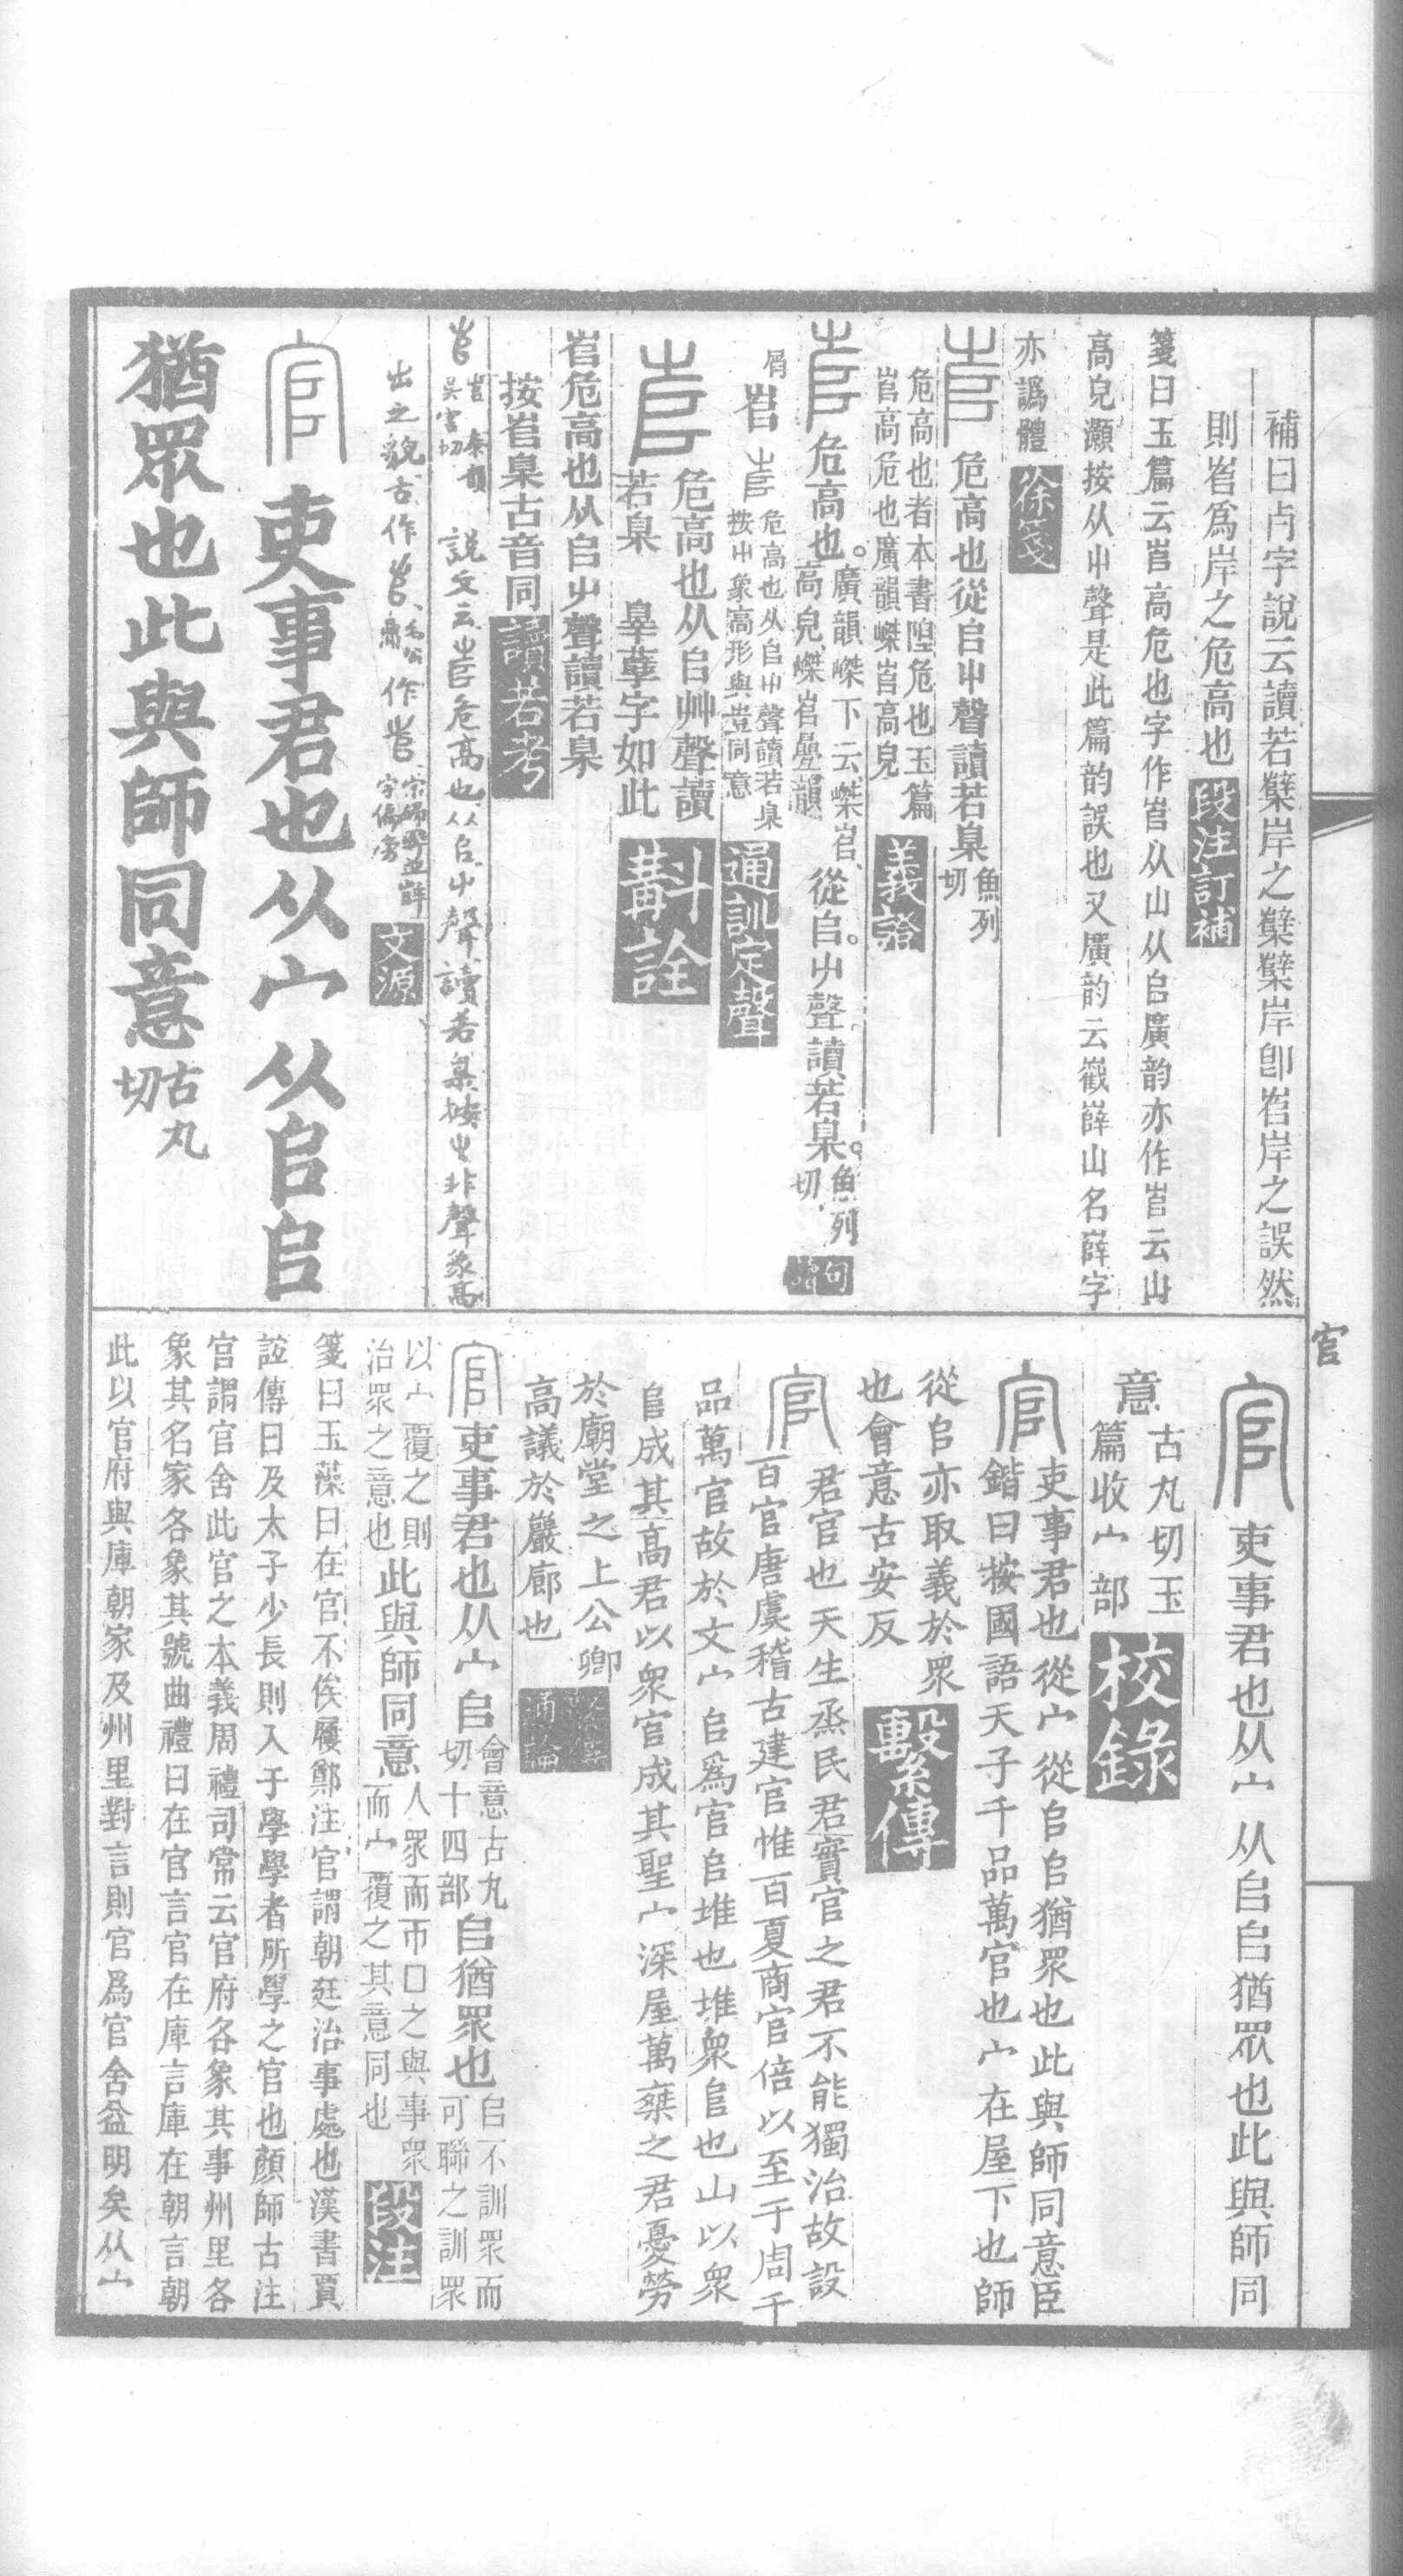 補曰卢字說云讀若櫱岸之櫱櫱岸卽峊岸之誤然
則峊爲岸之危高也
段注訂補
箋曰玉篇云峊高危也字作峊从山从𠂤廣韵亦作峊云山
高皃灝按从屮聲是此篇韵誤也又廣韵云巀嶭山名嶭字
亦譌體
徐箋
危高也從𠂤屮聲讀若臬
魚列
切
危高也者本書隉危也玉篇
峊高危也廣韻嵥峊高皃
義證
危高也
廣韻嵥下云嵥峊
高皃嵥峊疊韻
從𠂤屮聲讀若臬
魚列
切
句
讀
屑
峊
危高也从𠂤屮聲讀若臬
按屮象高形與豈同意
通訓定聲
危高也从𠂤艸聲讀
若臬 辠孽字如此
斠詮
峊危高也从𠂤屮聲讀若臬
按峊臬古音同
讀若考
峊
泰韻
說文云峊危高也从𠂤屮聲讀若臬按屮非聲象高
出之貌古作峊毛公鼎作峊
文源
官
吏事君也从宀从𠂤𠂤
猶眾也此與師同意
古丸
切
官
官
吏事君也从宀从𠂤𠂤猶眾也此與師同
意
古丸切玉
篇收宀部
校錄
官
吏事君也從宀從𠂤𠂤猶眾也此與師同意臣
鍇曰按國語天子千品萬官也宀在屋下也師
從𠂤亦取義於眾
也會意古安反
繫傳
官
君官也天生烝民君實官之君不能獨治故設
百官唐虞稽古建官惟百夏商官倍以至于周千
品萬官故於文宀𠂤爲官𠂤堆也堆衆𠂤也山以衆
𠂤成其高君以衆官成其聖宀深屋萬乘之君憂勞
於廟堂之上公卿
高議於巖廊也
通論
官
吏事君也从宀𠂤
會意古丸
切十四部
𠂤猶眾也
𠂤不訓眾而
可聯之訓眾
以宀覆之則
治眾之意也
此與師同意
人眾而帀口之與事眾
而宀覆之其意同也
段注
箋曰玉藻曰在官不俟屨鄭注官謂朝廷治事處也漢書賈
誼傳曰及太子少長則入于學學者所學之官也顏師古注
官謂官舍此官之本義周禮司常云官府各象其事州里各
象其名家各象其號曲禮曰在官言官在庫言庫在朝言朝
此以官府與庫朝家及州里對言則官爲官舍益明矣从宀